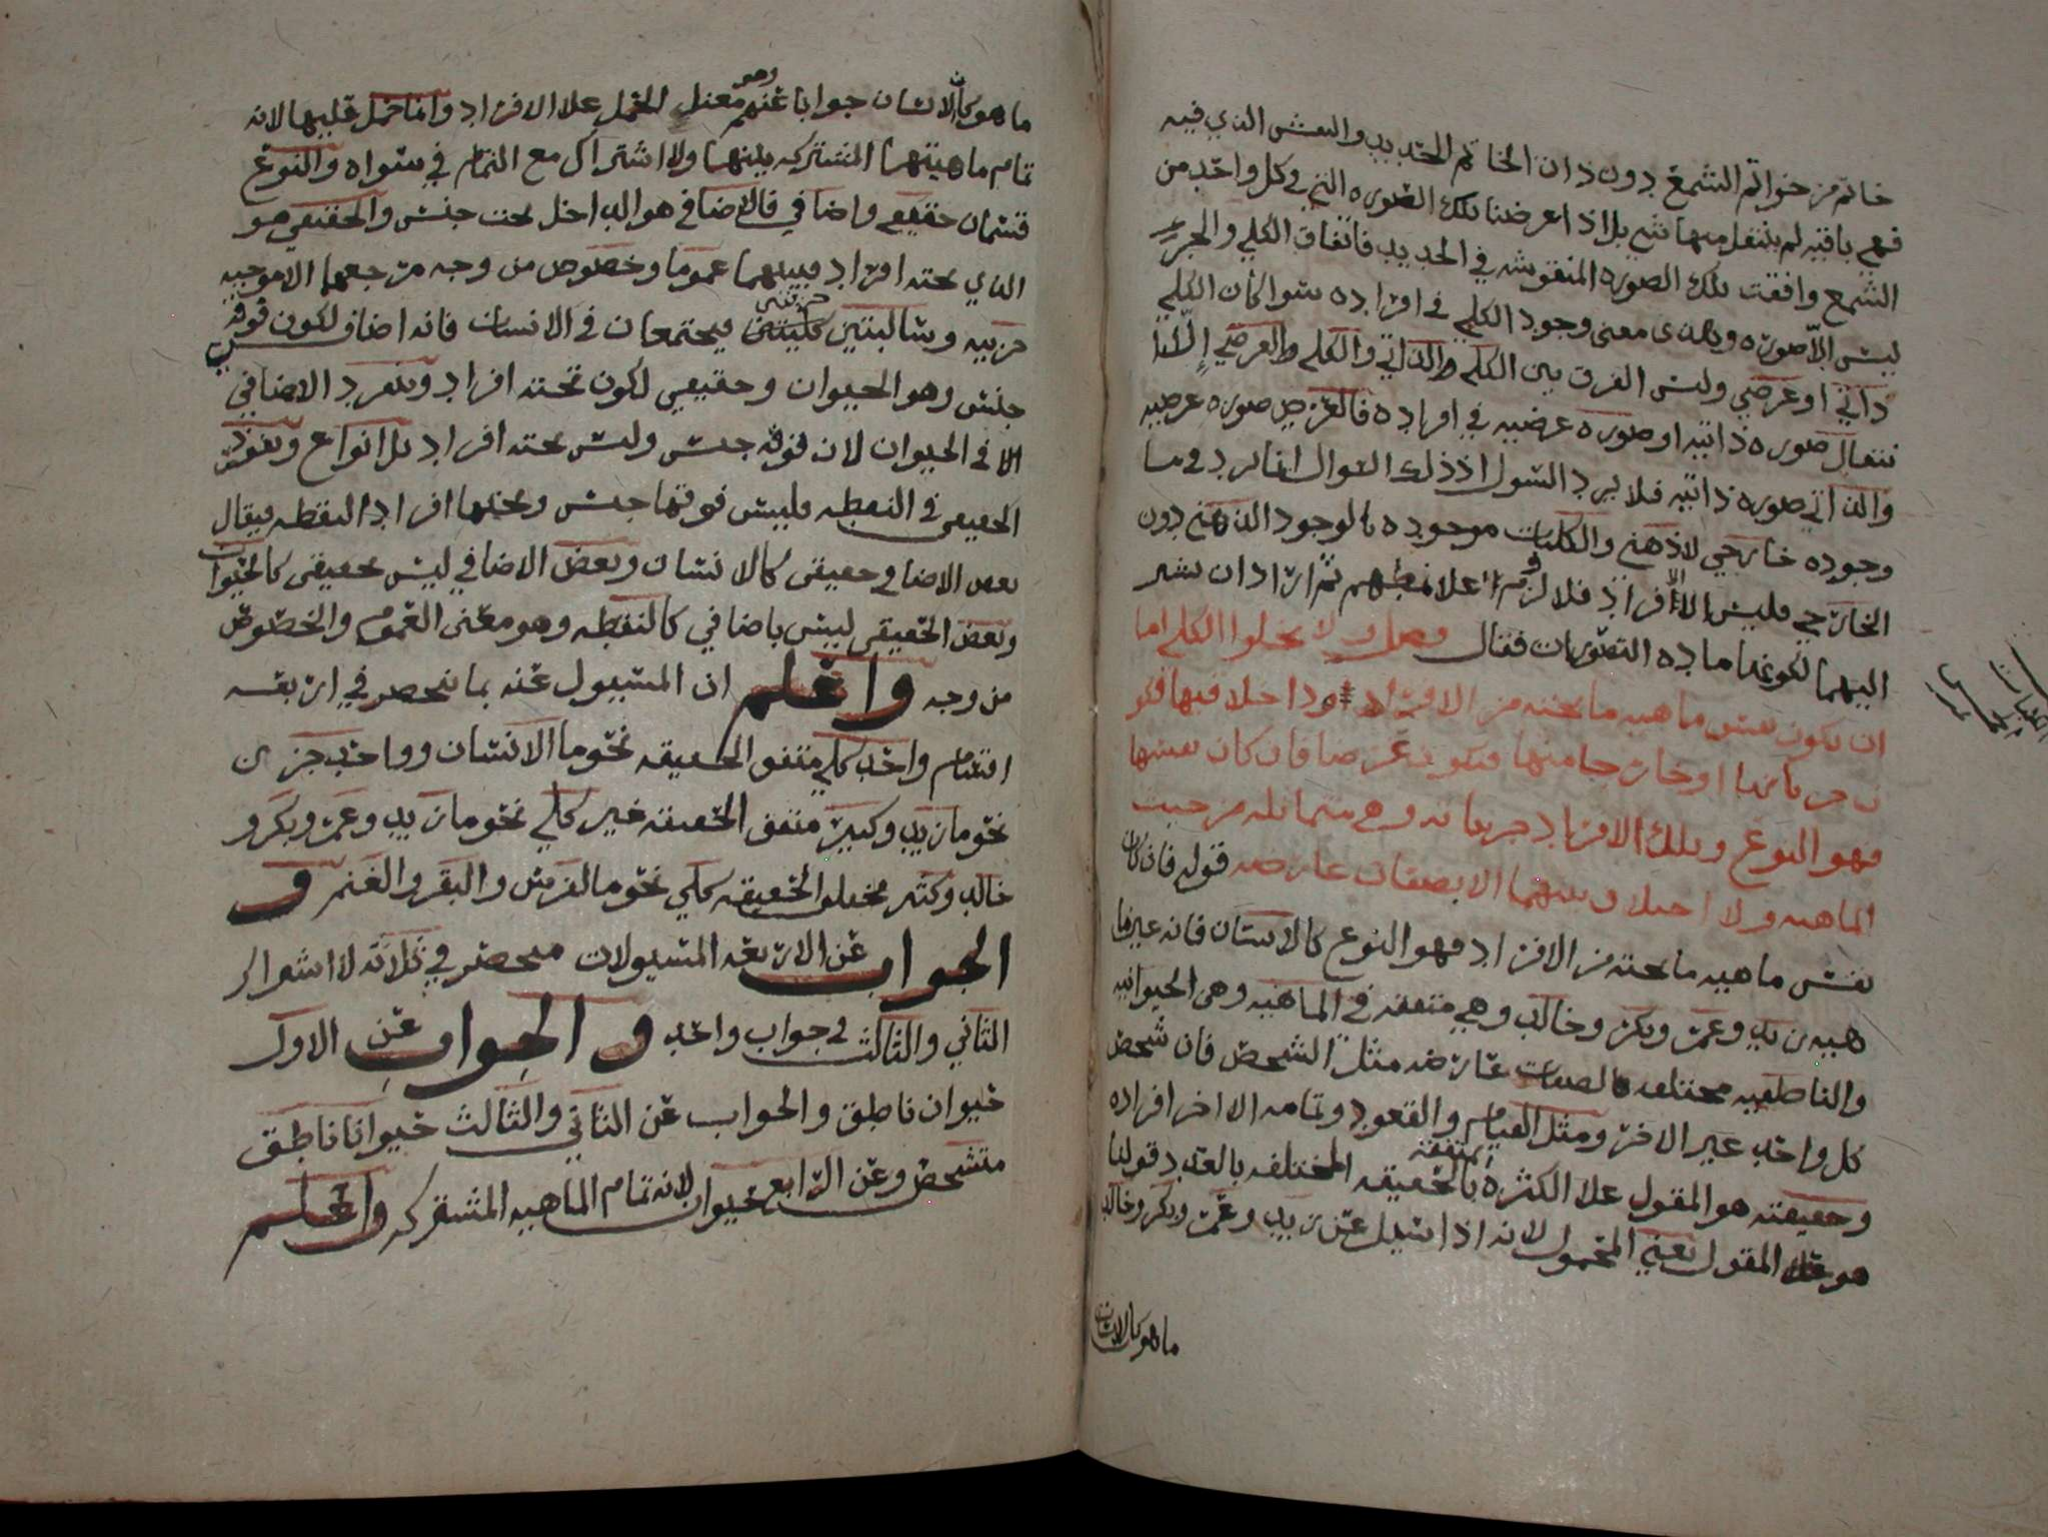 خاتم من خواتم الشمع دون ذات الخاتم الحديد والنقش الذي فيه
فهي باقيه لم ينتقل منها شي بل اذا عرضنا تلك الصوره التي في كل واحد من
الشمع وافقت تلك الصوره المنقوشه في الحديد فاتفاق الكلي والجزئي
ليس الا صوره وهذى معنى وجود الكلي في افراده سوا كان الكلي
ذاتي او عرضي وليس الفرق بين الكلي والذاتي والكلي والعرضي
صوره ذاتيه او صوره عرضيه في افراده فالعرض صوره عرضيه
والذاتي صوره ذاتيه فلا يرد السول اذ ذلك السوال انما يرد في ما
وجوده خارجي لا ذهني والكليات موجوده بالوجود الذهني دون
الخارجي فليس الا افراد فلا لزم ثم اراد ان يشير
اليهما لكونهما ماده التصورات فقال فصل ولا يخلوا الكلي اما
ان يكون نفس ماهيه ما تحته من الافراد او داخلا فيها فيكو
ن جزءا لها او خارجا منها فيكون عرضا فان كان نفسها
فهو النوع وتلك الافراد جزيا ته وهي متماثله من حيث
الماهيه ولا اختلاف بينهما الا بصفات عارضه قوله فان كان
نفس ماهيه ما تحته من الافراد فهو النوع كالانسان فانه عين ما
هيه زيد وعمر وبكر وخالد وهي متفقه في الماهيه وهي الحيوانيه
والناطقيه مختلفه بالصفات عارضه مثل الشخص فان شخص
كل واحد غير الاخر ومثل القيام والقعود وتمامه الا اخر افراده
وحقيقته هو المقول علا الكثره المتفقه بالحقيقه المختلفه بالعدد قولنا
هو المقول يعني المحمول لانه اذا سيل عن زيد وعمر وبكر وخالد
ما هو كالانسان
ما هو كالانسان جوابا عنهم وهو معنى الحمل علا الافراد وانما حمل عليها لانه
تمام ماهيتها المشتركه بينها ولا اشتراك مع التمام في سواه والنوع
قسمان حقيقي واضافي فالاضافي هو الداخل تحت جنس والحقيقي هو
الذي تحته افراد فبينهما عموما وخصوص من وجه مرجعهما الا موجبه
جزييه وسالبتين جزئتين كليتين فيجتمعان في الانسان فانه اضافي لكون فوقه
جنس وهو الحيوان وحقيقي لكون تحته افراد وينفرد الاضافي
الا في الحيوان لان فوقه جنس وليس تحته افراد بل انواع وينفرد
الحقيقي في النقطه فليس فوقها جنس وتحتها افراد النقطه فيقال
بعض الاضافي حقيقي كالانسان وبعض الاضافي ليس حقيقي كالحيوان
وبعض الحقيقي ليس باضافي كالنقطه وهو معنى العموم والخصوص
من وجه واعلم ان المسيول عنه بما ينحصر في اربعه
اقسام واحد كلي متفق الحقيقه نحو ما الانسان وواحد جزى
نحو ما زيد وكبير متفق الحقيقه غير كلي نحو ما زيد وعمر وبكر و
خالد وكثير مختلف الحقيقه كلي نحو ما الفرس والبقر والغنم و
الجواب عن الاربعه المسيولات منحصر في ثلاثه لاشتراك
الثاني والثالث في جواب واحد و الجواب عن الاول
حيوان ناطق والجواب عن الثاني والثالث حيوانا ناطق
متشخص وعن الرابع حيوان لانه تمام الماهيه المشتركه واعلم